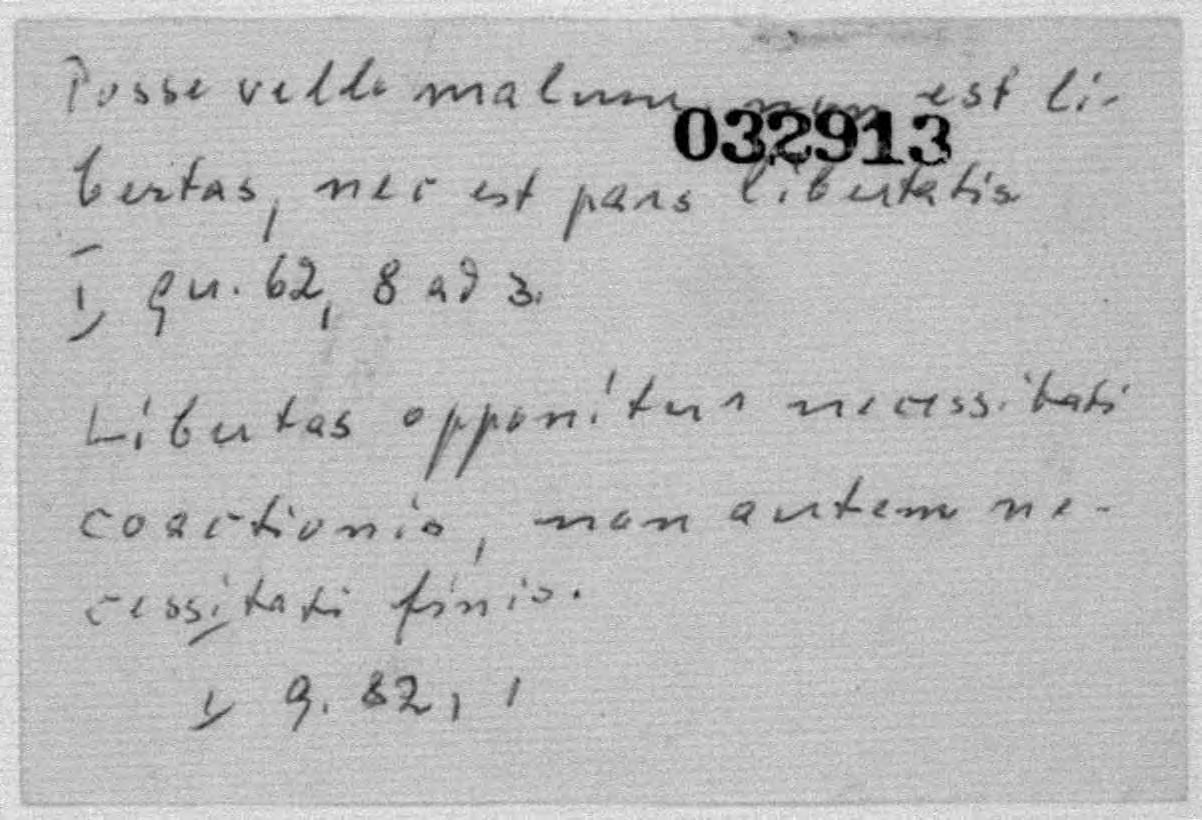 Posse velle malum non est li-
032913
bertas, nec est pars libertatis
I, qu. 62, 8 ad 3.
Libertas opponitur necessitati
coactionis, non autem ne-
cessitati finis.
I, q. 82, 1